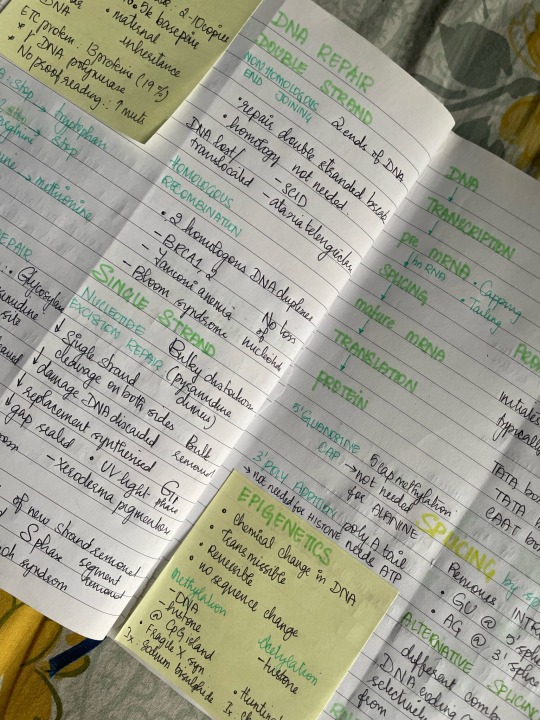 DNA
: 2-10 copies
16.5k base pairs
• maternal
inheritance
ETC protein: 13 proteins (19%)
* DNA polymerase
* No proof reading: ↑ muts
: stop → tryptophan
arginine → stop
→ methionine
REPAIR
Glycosylase
site
DNA REPAIR
DOUBLE STRAND
NONHOMOLOGOUS
END JOINING
2 ends of DNA
• repair double stranded break
• homology not needed
DNA lost/
translocated
- SCID
- ataxia telengiectasia
HOMOLOGOUS
RECOMBINATION
• 2 homologous DNA duplexes
- BRCA 1, 2
- Fanconi anemia
- Bloom syndrome
No loss
of
nucleotid
SINGLE STRAND
NUCLEOTIDE
EXCISION REPAIR
Bulky distortions
(pyramidine
dimer)
↓ Single strand
cleavage on both sides
↓ damage DNA discarded
Bulk
removal
↓ replacement synthesised
G1 phase
↓ gap sealed
• UV light
- Xeroderma pigmentos
of new strand removed
S phase
segment
removed
syndrom
DNA
↓
TRANSCRIPTION
↓
pre mRNA
↓ hn RNA
• Capping
• Tailing
SPLICING
↓
mature mRNA
↓
TRANSLATION
↓
PROTEIN
5' GUANDRINE
CAP
5' cap methylation
→ Not needed
for ALANINE
3' POLY ADDITION
→ not needed for HISTONE
poly A tail
needs ATP
EPIGENETICS
• Chemical change in DNA
• transmissible
• Reversible
• no sequence change
Methylation
- DNA
- histone
@ CpG island
• Fragile X syn
Ix: Sodium bisulphide
Acetylation
- histone
• Hunting
Ix: Ch
initiates
typically
TATA box
TATA
CAAT box
SPLICING
by
Removes INTR
• GU @ 5' splice
• AG @ 3' splice
ALTERNATIVE SPLICING
different comb
DNA coding
selectively
from